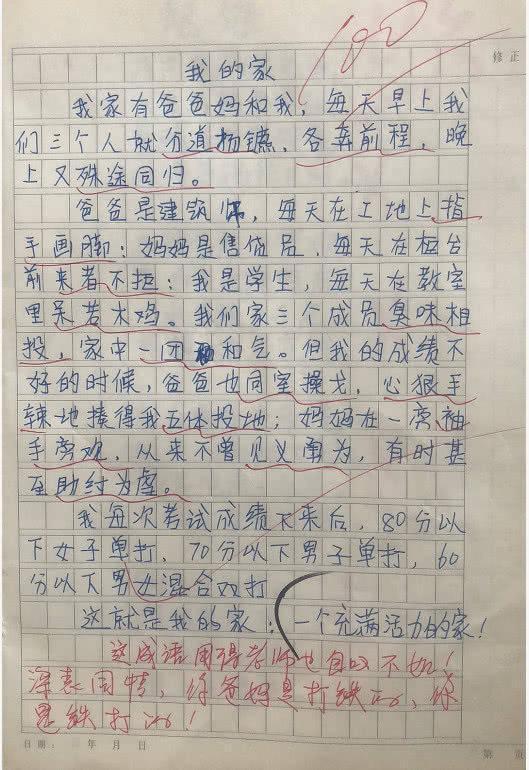 100
修正
我的家
我家有爸爸妈和我，每天早上我
们三个人就分道扬镳，各弃前程，晚
上又殊途同归。
爸爸是建筑师，每天在工地上指
手画脚；妈妈是售货员，每天在柜台
前来者不拒；我是学生，每天在教室
里呆若木鸡。我们家三个成员臭味相
投，家中一团和气。但我的成绩不
好的时候，爸爸也同室操戈，心狠手
辣地揍得我五体投地；妈妈在一旁袖
手旁观，从来不曾见义勇为，有时甚
至助纣为虐。
我每次考试成绩下来后，80分以
下女子单打，70分以下男子单打，60
分以下男女混合双打
这就是我的家：一个充满活力的家！
这成语用得老师也自叹不如！
深表同情，你爸妈是打铁的，你
是铁打的！
日期：　年　月　日
第　页